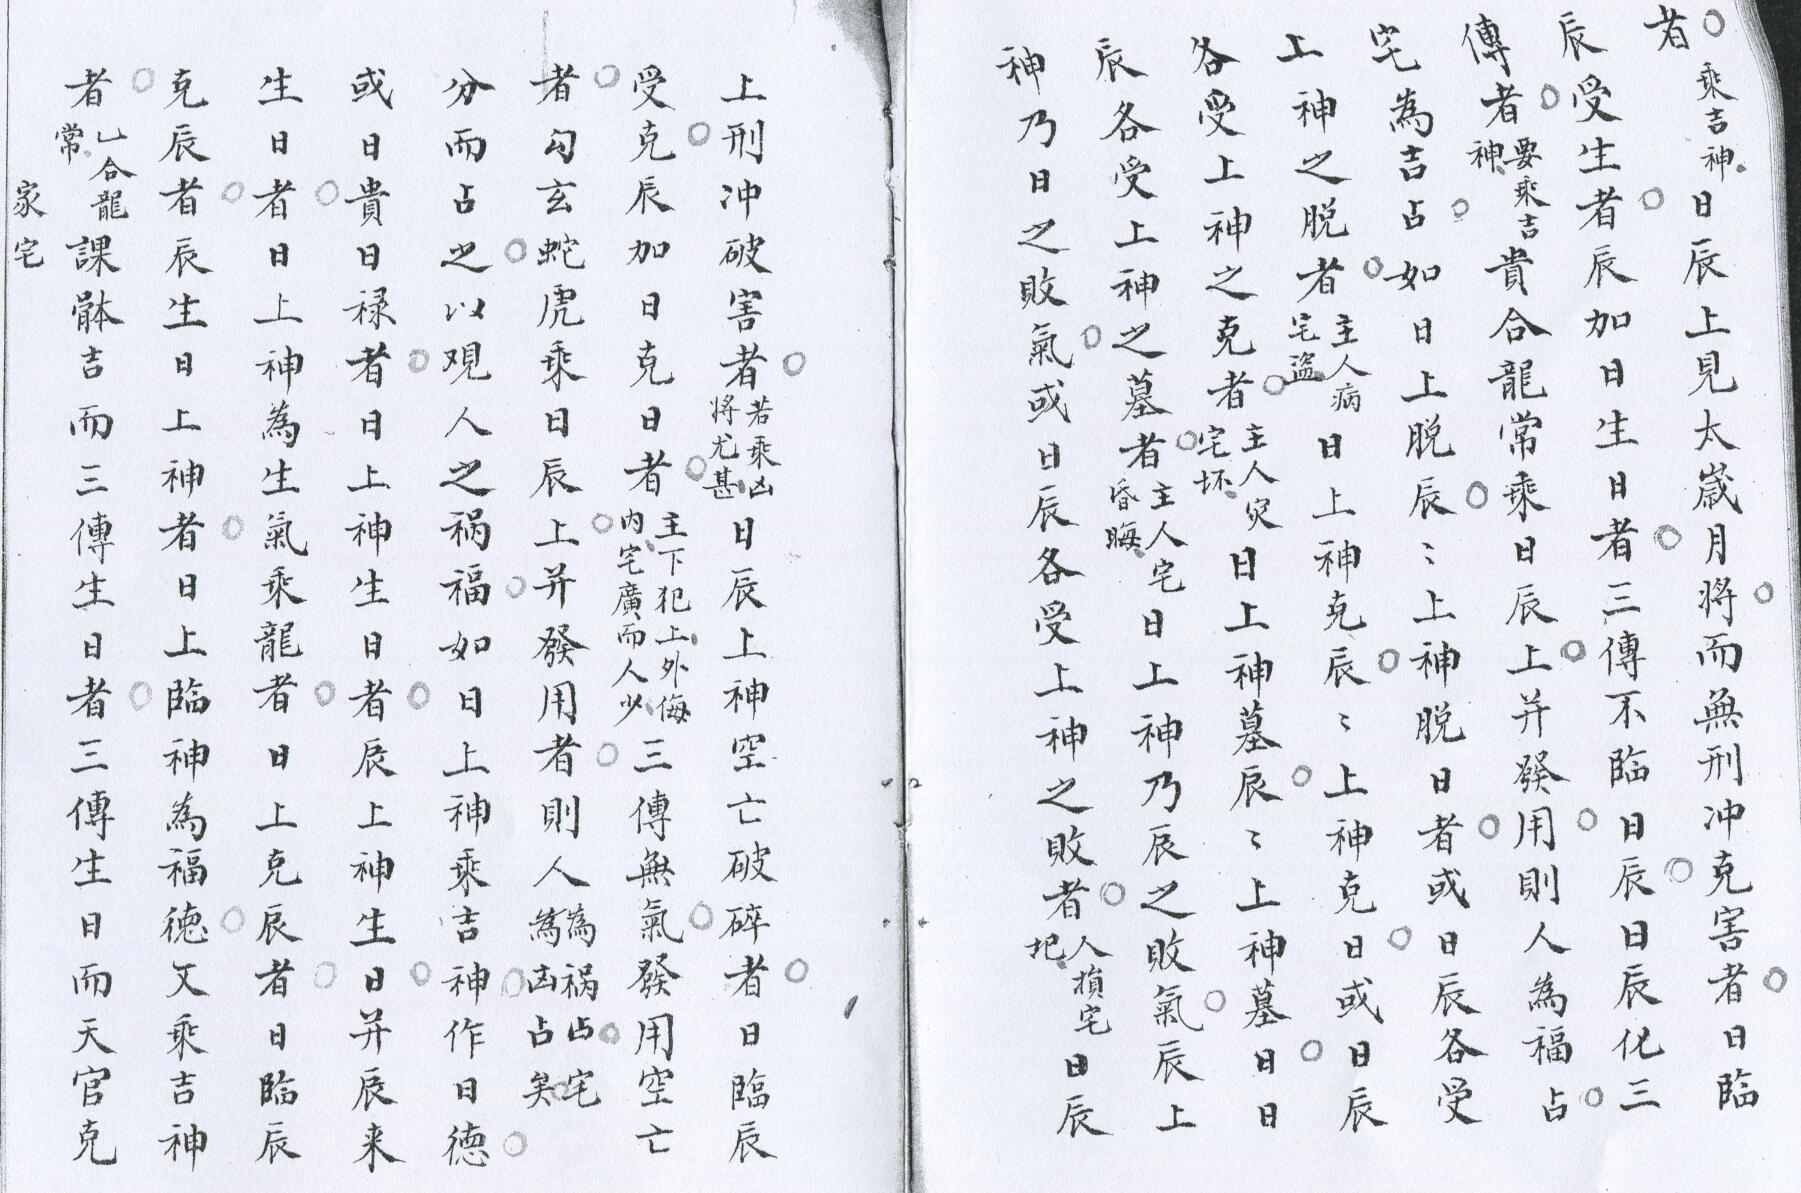 者乘吉神日辰上見太歲月將而無刑冲克害者日臨
辰受生者辰加日生日者三傳不臨日辰日辰化三
傳者要乘吉神貴合龍常乘日辰上并發用則人為福占
宅為吉占如日上脫辰〻上神脫日者或日辰各受
上神之脫者主人病宅盜日上神克辰〻上神克日或日辰
各受上神之克者主人灾宅坏日上神墓辰〻上神墓日日
辰各受上神之墓者主人宅昏晦日上神乃辰之敗氣辰上
神乃日之敗氣或日辰各受上神之敗者人損宅圮日辰
上刑冲破害者若乘凶將尤甚日辰上神空亡破碎者日臨辰
受克辰加日克日者主下犯上外侮内宅廣而人少三傳無氣發用空亡
者勾玄蛇虎乘日辰上并發用者則人為禍占宅為凶占矣
分而占之以观人之禍福如日上神乘吉神作日德
或日貴日祿者日上神生日者辰上神生日并辰来
生日者日上神為生氣乘龍者日上克辰者日臨辰
克辰者辰生日上神者日上臨神為福德又乘吉神
者乚合龍常課骵吉而三傳生日者三傳生日而天官克
家宅